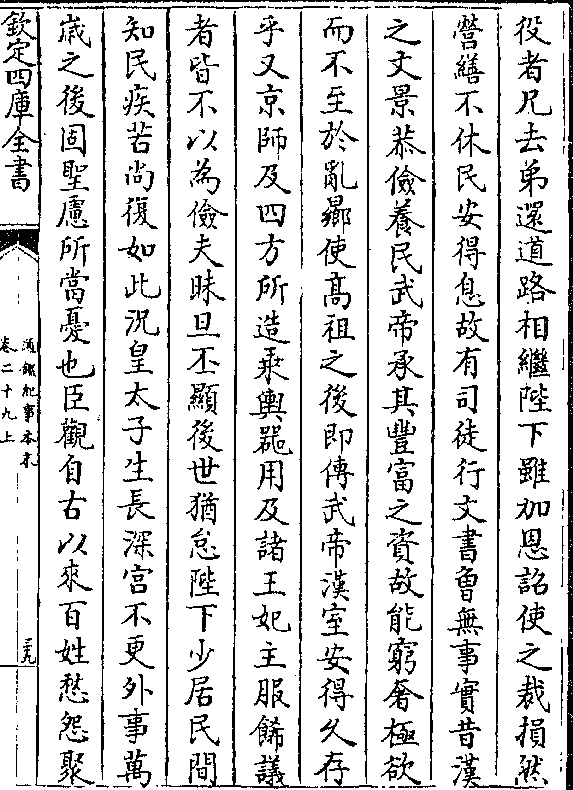 役者兄去弟還道路相繼陛下雖加恩詔使之裁損然
營繕不休民安得息故有司徒行文書曾無事實昔漢
之文景恭儉養民武帝承其豐富之資故能窮奢極欲
而不至於亂曏使髙祖之後即傳武帝漢室安得久存
乎又京師及四方所造乗輿器用及諸王妃主服飾議
者皆不以為儉夫昧旦丕顯後世猶怠陛下少居民間
知民疾苦尚復如此況皇太子生長深宮不更外事萬
嵗之後固聖慮所當憂也臣觀自古以來百姓愁怨聚
欽定四庫全書
通鑑紀事本末
卷二十九上
三九